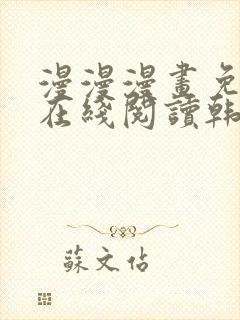 漫漫漫畫免
在綫閱讀韩
蘇文佔